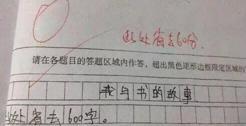 此处省去60分.
请在各题目的答题区域内作答，超出黑色矩形边框限定区域的
我与书的故事
此处省去600字。